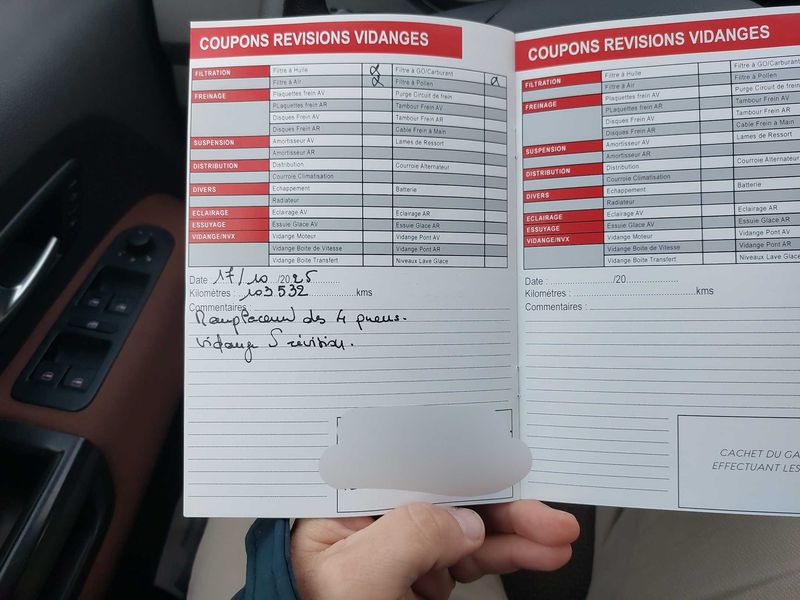 COUPONS REVISIONS VIDANGES
FILTRATION Filtre à Huile Filtre à GO/Carburant
Filtre à Air Filtre à Pollen
FREINAGE Plaquettes frein AV Purge Circuit de frein
PLaquettes frein AR Tambour Frein AV
Disques Frein AV Tambour Frein AR
Disques Frein AR Cable Frein à Main
SUSPENSION Amortisseur AV Lames de Ressort
Amortisseur AR
DISTRIBUTION Distribution Courroie Alternateur
Courroie Climatisation
DIVERS Echappement Batterie
Radiateur
ECLAIRAGE Eclairage AV Eclairage AR
ESSUYAGE Essuie Glace AV Essuie Glace AR
VIDANGE/NVX Vidange Moteur Vidange Pont AV
Vidange Boite de Vitesse Vidange Pont AR
Vidange Boite Transfert Niveaux Lave Glace
Date : 17/10 /2025
Kilomètres : 103532 kms
Commentaires :
Remplacement des 4 pneus.
Vidange S révision.
COUPONS REVISIONS VIDANGES
FILTRATION Filtre à Huile Filtre à GO/Carburan
Filtre à Air Filtre à Pollen
FREINAGE Plaquettes frein AV Purge Circuit de frein
PLaquettes frein AR Tambour Frein AV
Disques Frein AV Tambour Frein AR
Disques Frein AR Cable Frein à Main
SUSPENSION Amortisseur AV Lames de Ressort
Amortisseur AR
DISTRIBUTION Distribution Courroie Alternateur
Courroie Climatisation
DIVERS Echappement Batterie
Radiateur
ECLAIRAGE Eclairage AV Eclairage AR
ESSUYAGE Essuie Glace AV Essuie Glace AR
VIDANGE/NVX Vidange Moteur Vidange Pont AV
Vidange Boite de Vitesse Vidange Pont AR
Vidange Boite Transfert Niveaux Lave Glace
Date : /20
Kilomètres : kms
Commentaires :
CACHET DU GA
EFFECTUANT LES